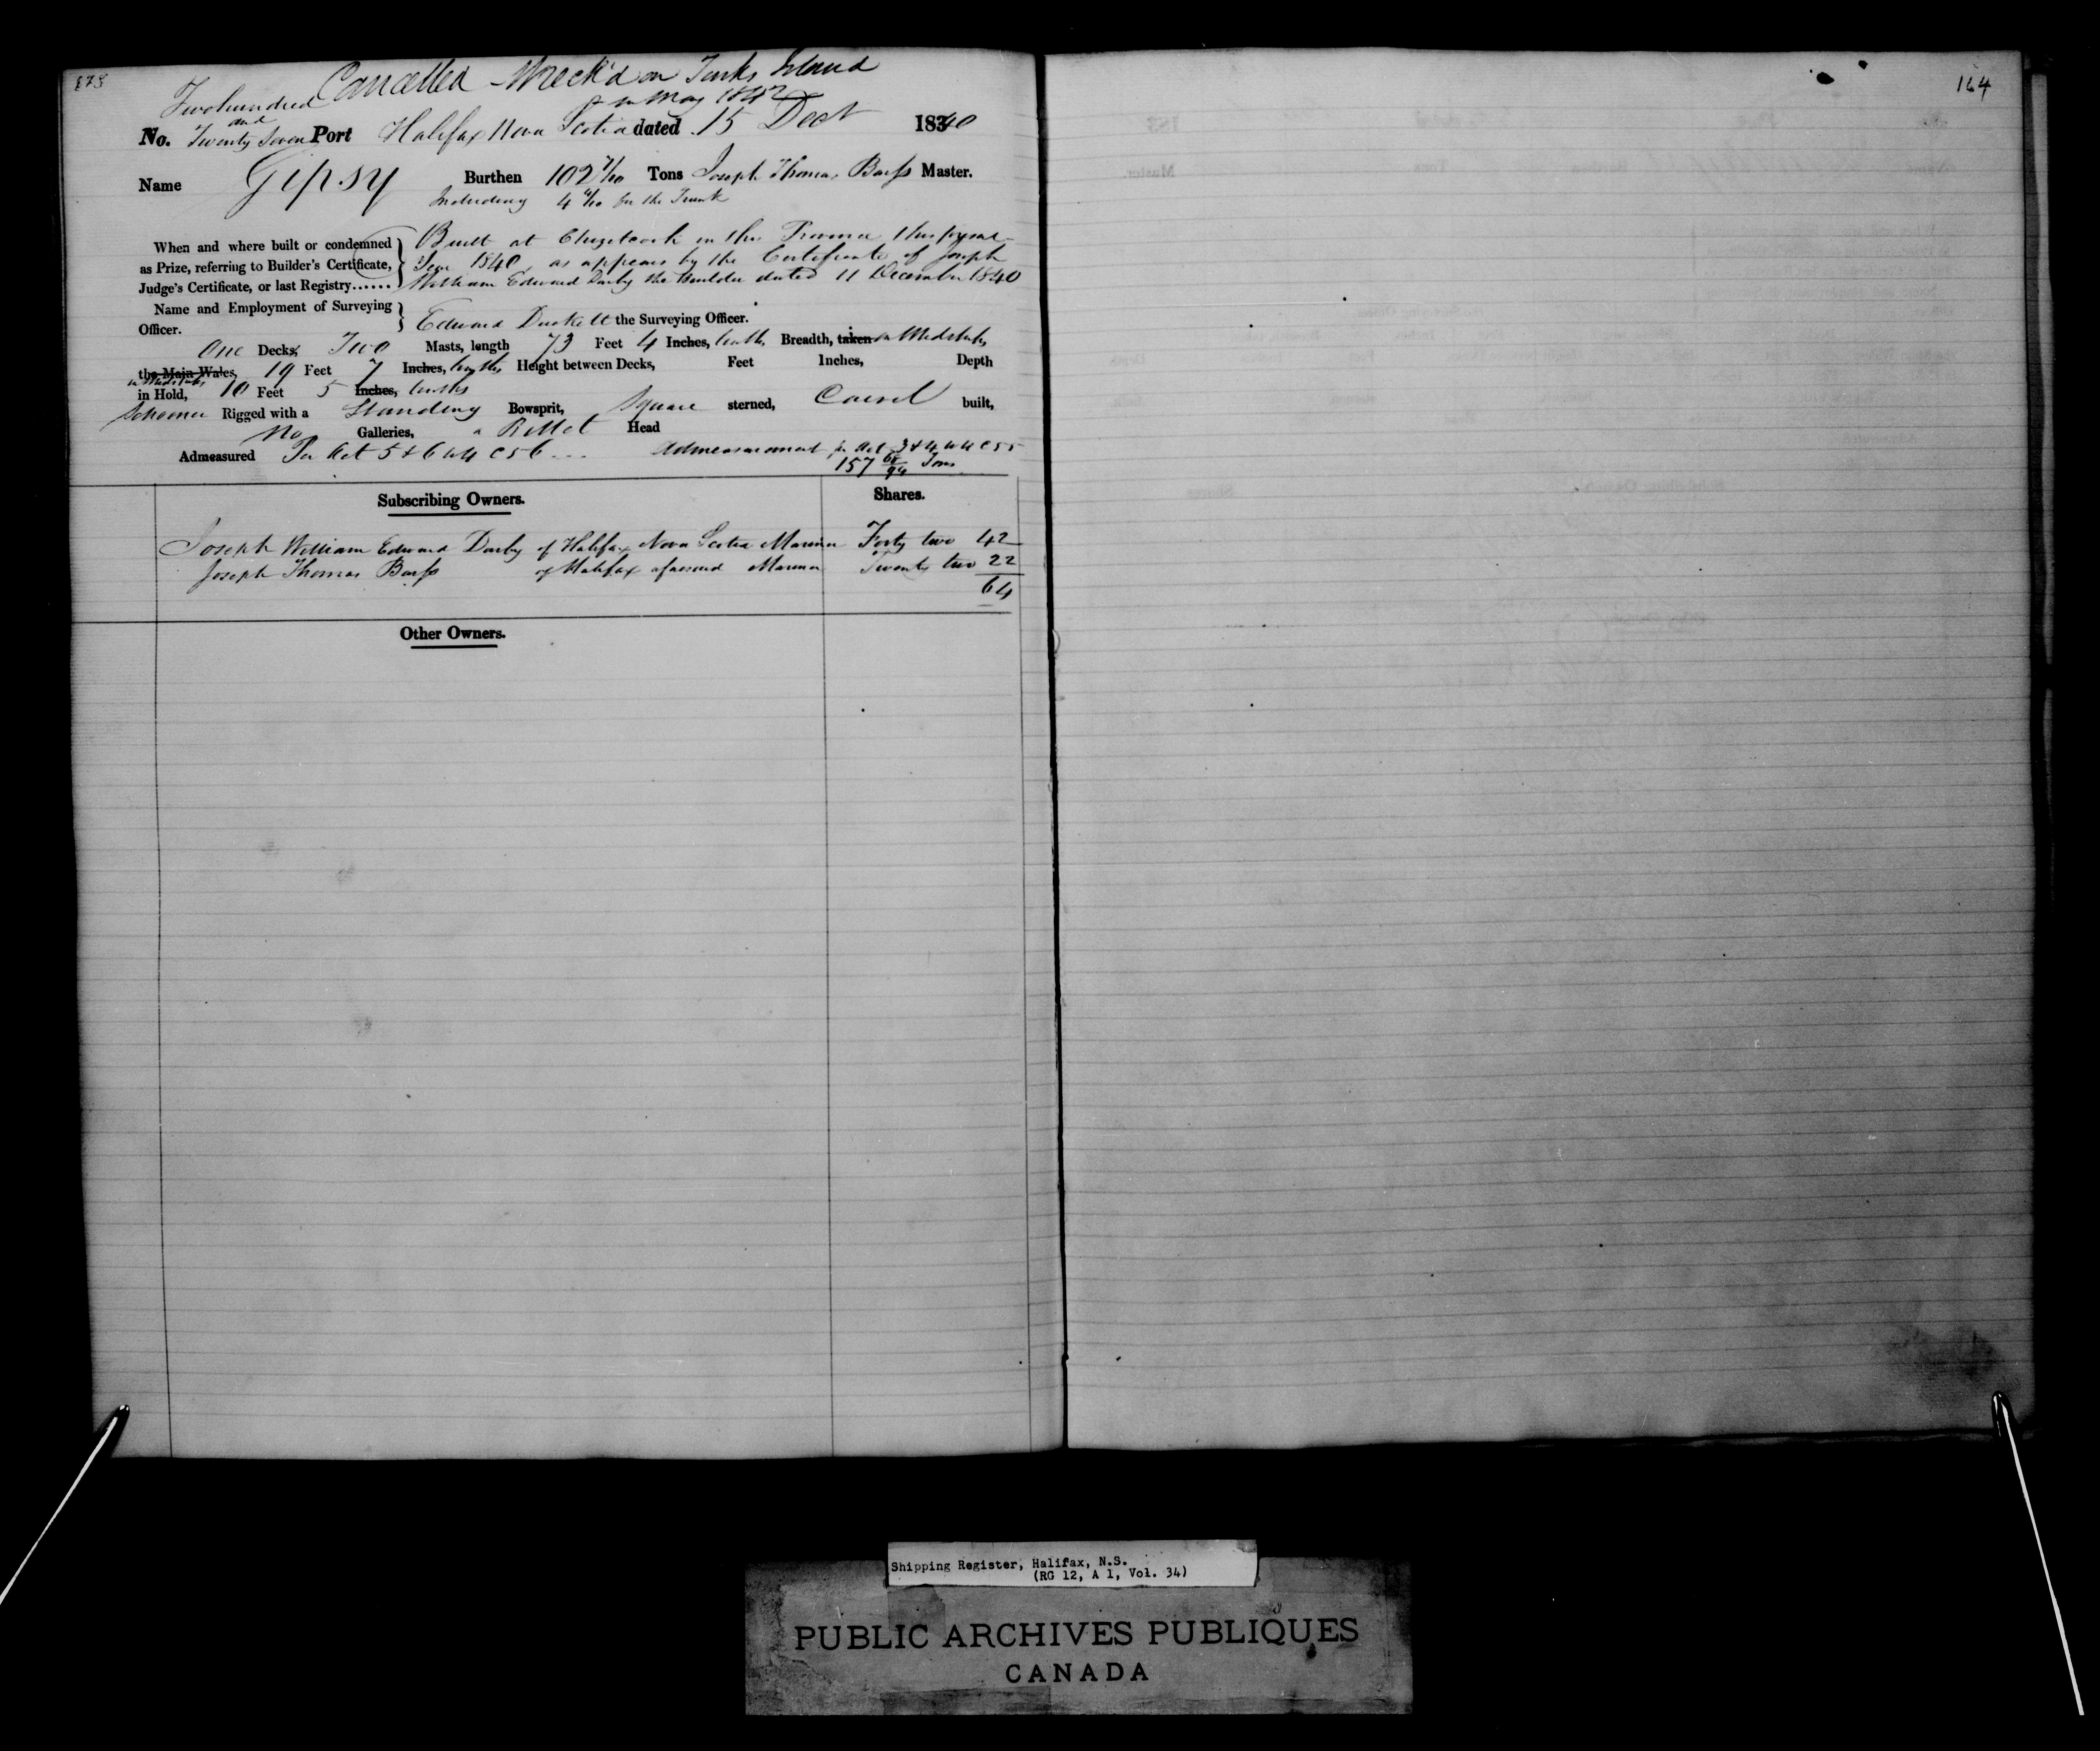 Cancelled - Wreck'd on Turks Island
in May 1842
Two hundred
and
No. Twenty Seven Port Halifax Nova Scotia dated 15 Dect 18340
Name Gipsy Burthen 102 7/10 Tons Joseph Thomas Barss Master.
Including 4 4/10 for the Trunk
When and where built or condemned
as Prize, referring to Builder's Certificate,
Judge's Certificate, or last Registry......
Built at Chezetcook in this Province this present
Year 1840, as appears by the Certificate of Joseph
William Edward Darby the Builder dated 11 December 1840
Name and Employment of Surveying
Officer.
Edward Duckett the Surveying Officer.
One Decks, Two Masts, length 73 Feet 4 Inches, tenths, Breadth, taken in Midships
the Main Wales, 19 Feet 7 Inches, tenths, Height between Decks, Feet Inches, Depth
in Midships
in Hold, 10 Feet 5 Inches, tenths
Schooner Rigged with a Standing Bowsprit, Square sterned, Carvel built,
No Galleries, a Billet Head
Admeasured Per Act 5 & 6 W 4 C 56 Admeasurement per Act 3 & 4 W 4 C 55
157 Tons
Subscribing Owners. Shares.
Joseph William Edward Darby of Halifax Nova Scotia Mariner Forty two 42
Joseph Thomas Barss of Halifax aforesaid Mariner Twenty two 22
64
Other Owners.
164
Shipping Register, Halifax, N.S.
(RG 12, A 1, Vol. 34)
PUBLIC ARCHIVES PUBLIQUES
CANADA